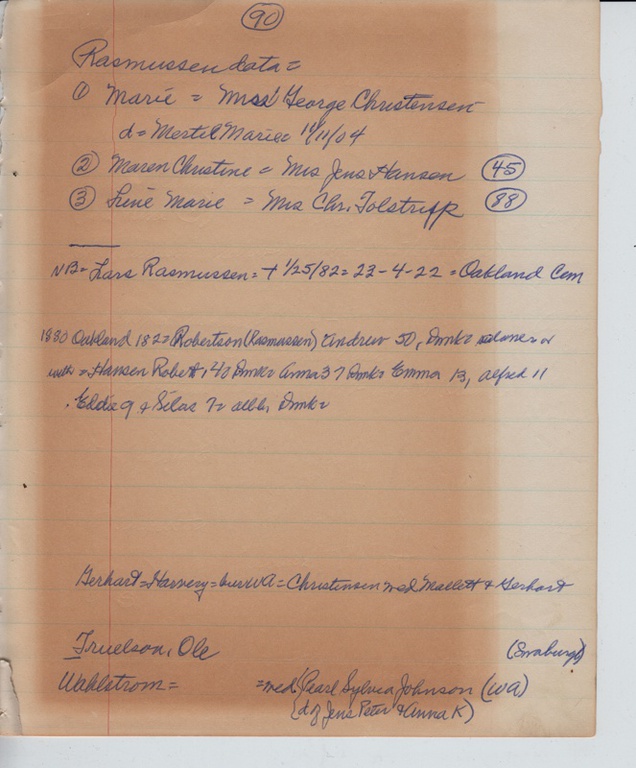 90
Rasmussen data =
① Marie = Mrs George Christensen
d = Mertel Marie = 11/11/04
② Maren Christine = Mrs Jens Hansen 45
③ Line Marie = Mrs Chr. Tolstrupp 88
NB = Lars Rasmussen = + 1/25/82 = 23-4-22 = Oakland Cem
1880 Oakland 182 = Robertson (Rasmussen) Andrew 50, Dmk =
with = Hansen Robert, 42 Dmk = Anna 37 Dmk = Emma 13, Alfred 11
Eddie 9 & Silas 7 = all b, Dmk =
Gerhart = Harvery = bur WA = Christensen med Mallett & Gerhart
Truelson, Ole (Swaburgh)
Wahlstrom = = med Pearl Sylvia Johnson (WA)
(d of Jens Peter & Anna K)